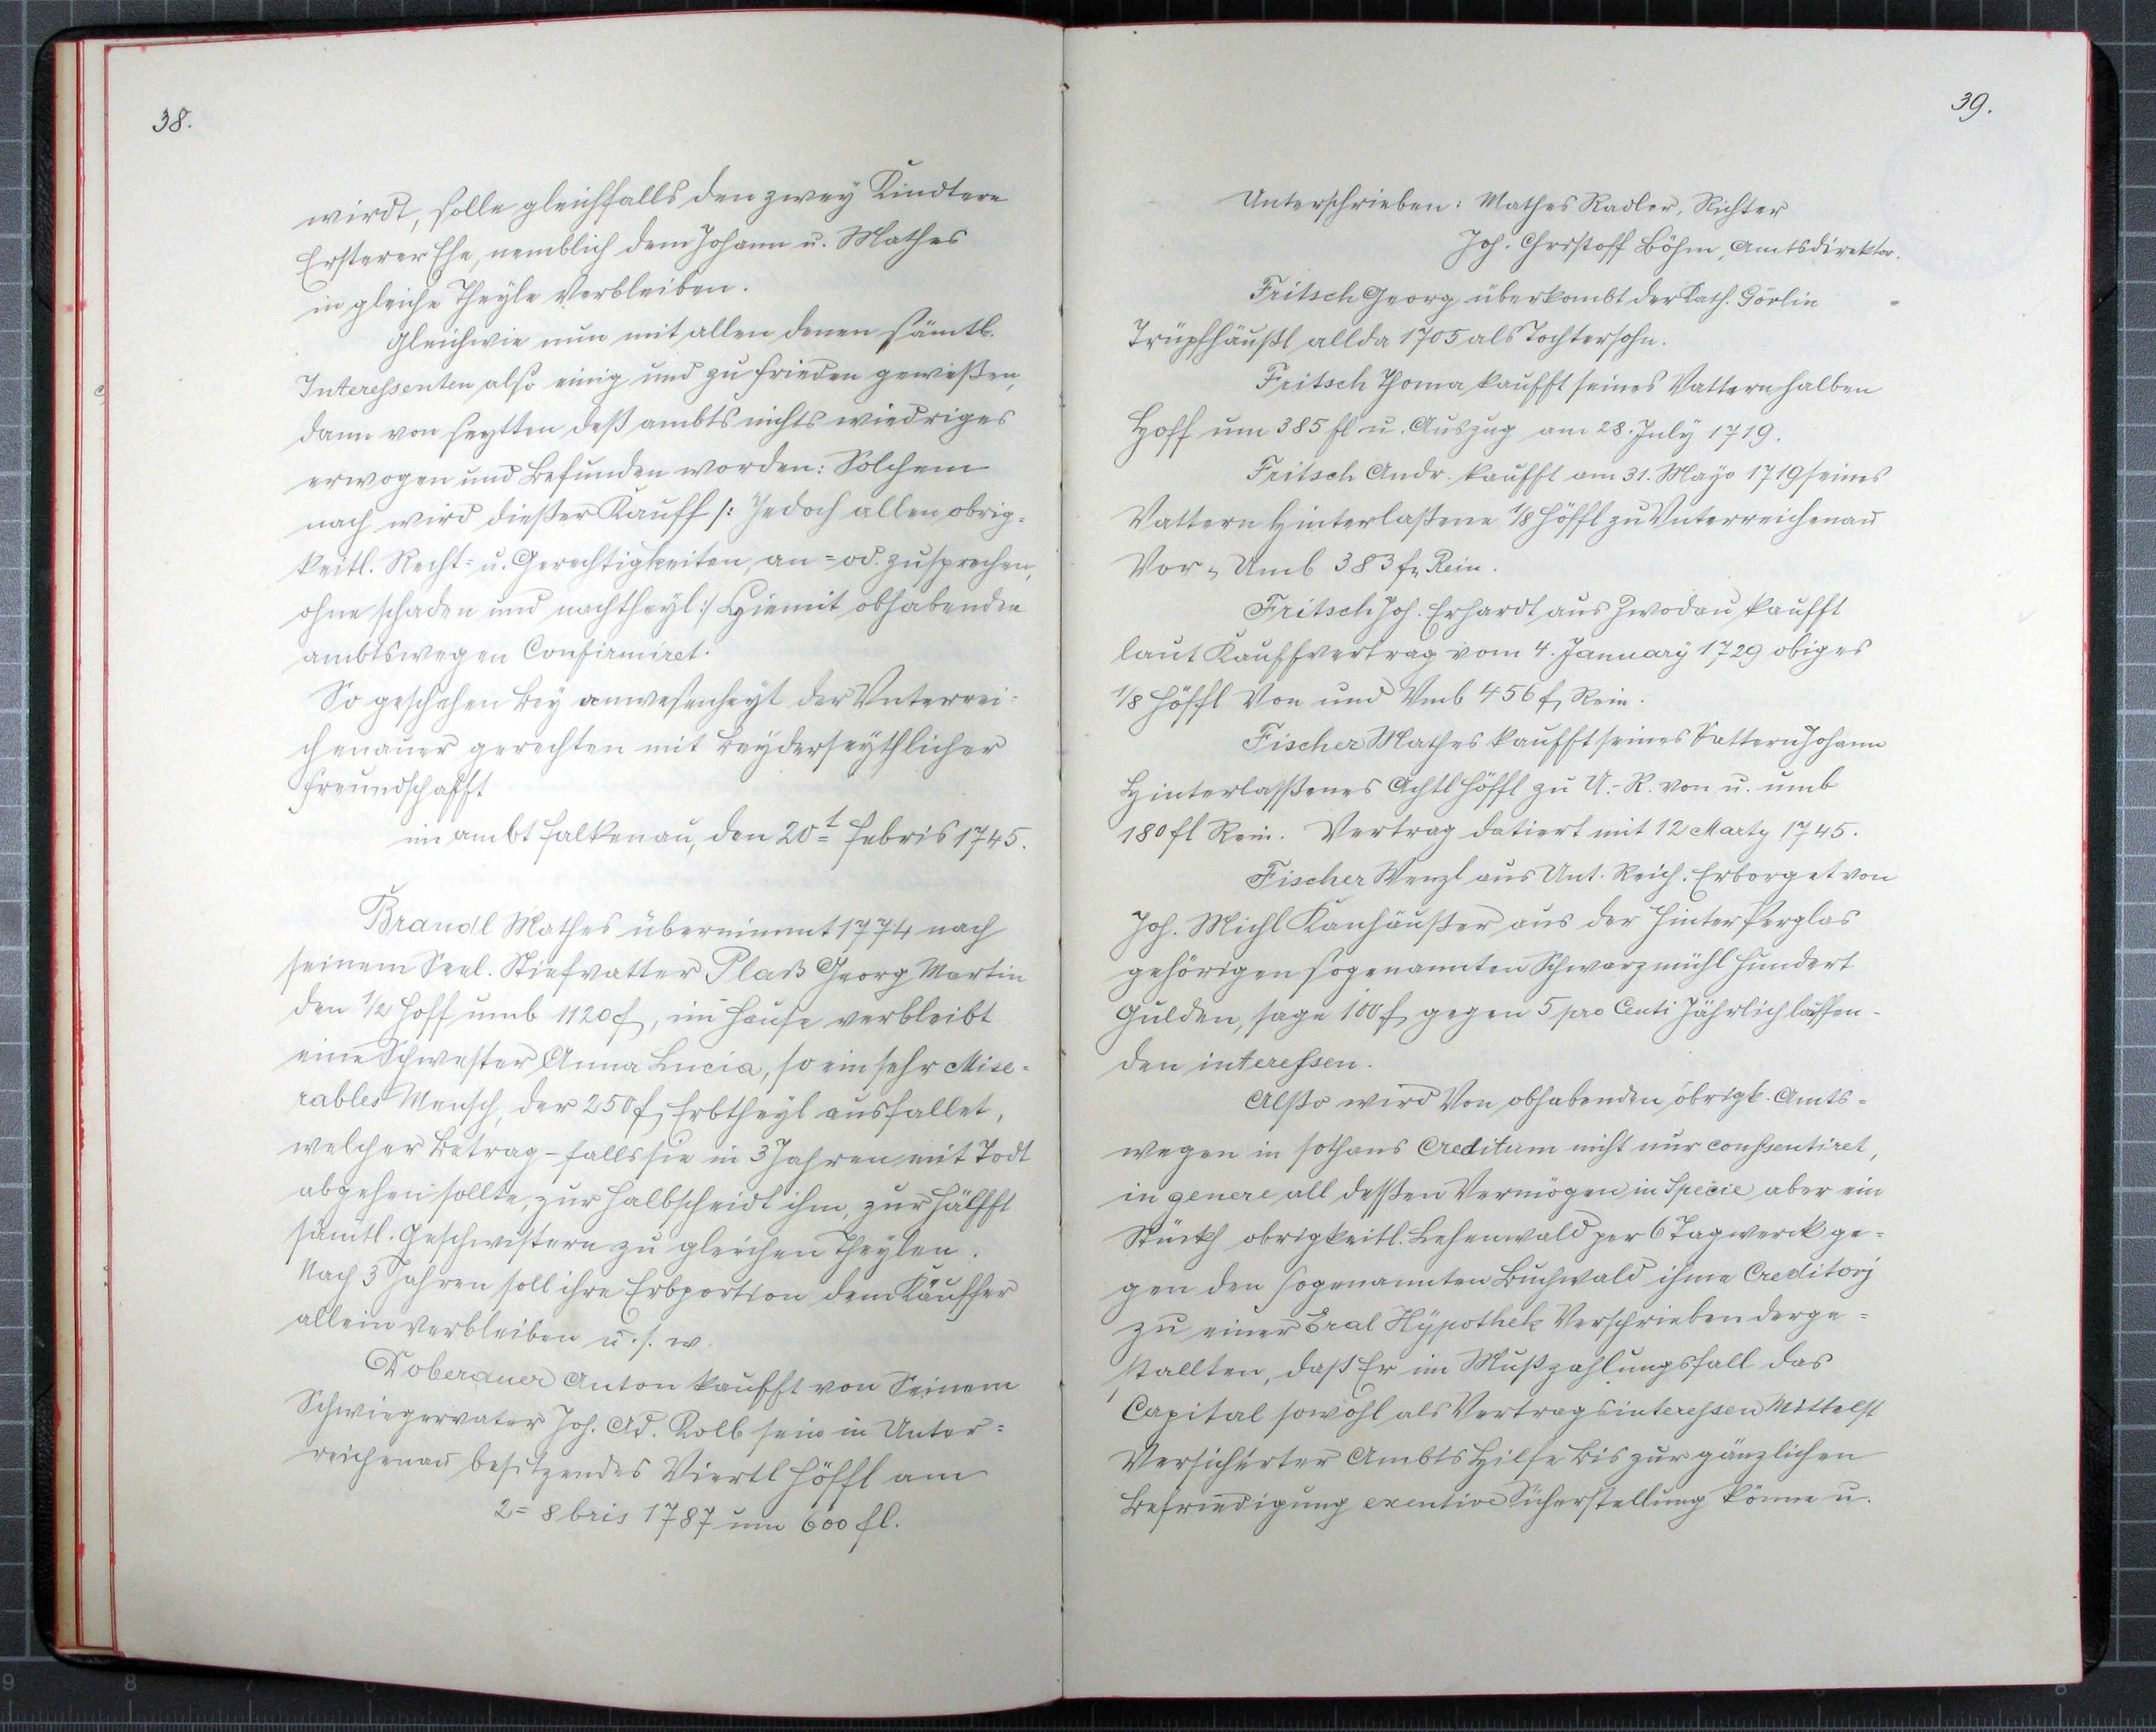 38.
wirdt, solle gleichfalls den zwey Kindtern
Ersterer Ehe, nemblich dem Johann u. Mathes
in gleiche Theyle Verbleiben.
Gleichwie nun mit allen denen sämtl.
Interessenten also einig und zu frieden geweßen,
dann von seytten deß ambts nichts wiedriges
erwogen und Befunden worden: Solchem
nach wird dießer Kauff /: Jedoch allen obrig-
keitl. Recht- u. Gerechtigkeiten, an- od. zusprechen,
ohne schaden und nachtheyl :/ Hiemit obhabenden
ambtswegen Confirmiret.
So geschehen Bey anwesenheyt der Unterrei-
chenauer gerechten mit Beyderseythlicher
freundschafft
im ambt Falkenau, den 20t Febris 1745.
Brandl Mathes übernimmt 1774 nach
seinem Seel. Stiefvatter Plaß Georg Martin
den 1/2 Hoff umb 1120 f, im Hause verbleibt
eine Schwester Anna Lucia, so ein sehr Mise-
rables Mensch, der 250 f Erbtheyl ausfallet,
welcher Betrag - falls sie in 3 Jahren mit Todt
abgehen sollte, zur Halbscheidt ihm, zur Hälfft
sämtl. Geschwistern zu gleichen Theylen.
Nach 3 Jahren soll ihre Erbportion dem Käuffer
allein verbleiben u. s. w.
Doberauer Anton kaufft von Seinem
Schwiegervater Joh. Ad. Kolb sein in Unter-
reichenau besitzendes Viertl Höffl am
2= 8bris 1787 um 600 fl.
39.
Unterschrieben: Mathes Radler, Richter
Joh. Christoff Böhm, Amtsdirektor.
Fritsch Georg überkombt der Kath. Görlin
Trüpfhäußl allda 1705 als Tochtersohn.
Fritsch Thoma kaufft seines Vattern halben
Hoff um 385 fl u. Auszug am 28. July 1719.
Fritsch Andr. kaufft am 31. Mayo 1719 seines
Vattern Hinterlaßene 1/8 Höffl zu Unterreichenau
Vor u Umb 383 f Rein.
Fritsch Joh. Erhardt aus Zwodau kaufft
laut Kauffvertrag vom 4. January 1729 obiges
1/8 Höffl Von und Umb 456 f Rein.
Fischer Mathes kaufft seines Vattern Johann
Hinterlassßenes Achtl Höffl zu U.-R. von u. umb
180 fl Rein. Vertrag datiert mit 12 Marty 1745.
Fischer Wenzl aus Unt. Reich. Erborget von
Joh. Michl Kanhäußer aus der Hinter Perglas
gehörigen sogenannten Schwarzmühl Hundert
Gulden, sage 100 f gegen 5 pro Centi Jährlich lauffen-
den interessen.
Alßo wird Von obhabenden obrigk. Amts-
wegen in sothans Creditum nicht nur conssentiret,
in genere all deßen Vermögen in Specie aber ein
Stückh obrigkeitl. Lehenwald per 6 Tagwerck ge-
gen den sogenannten Buchwald ihme Creditorj
zu einer Hypothek Verschrieben derge-
stallten, daß Er im Mußzahlungsfall das
Capital sowohl als Vertragsinteressen Mittelst
Versicherter Ambts Hilfe Bis zur gänzlichen
Befriedigung exentive Sicherstellung könne u.